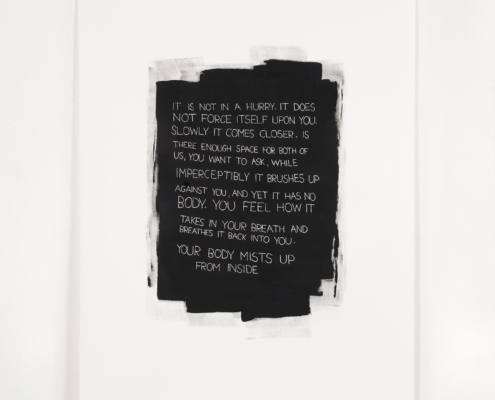 IT IS NOT IN A HURRY. IT DOES
NOT FORCE ITSELF UPON YOU.
SLOWLY IT COMES CLOSER. IS
THERE ENOUGH SPACE FOR BOTH OF
US, YOU WANT TO ASK, WHILE
IMPERCEPTIBLY IT BRUSHES UP
AGAINST YOU, AND YET IT HAS NO
BODY. YOU FEEL HOW IT
TAKES IN YOUR BREATH AND
BREATHES IT BACK INTO YOU.
YOUR BODY MISTS UP
FROM INSIDE